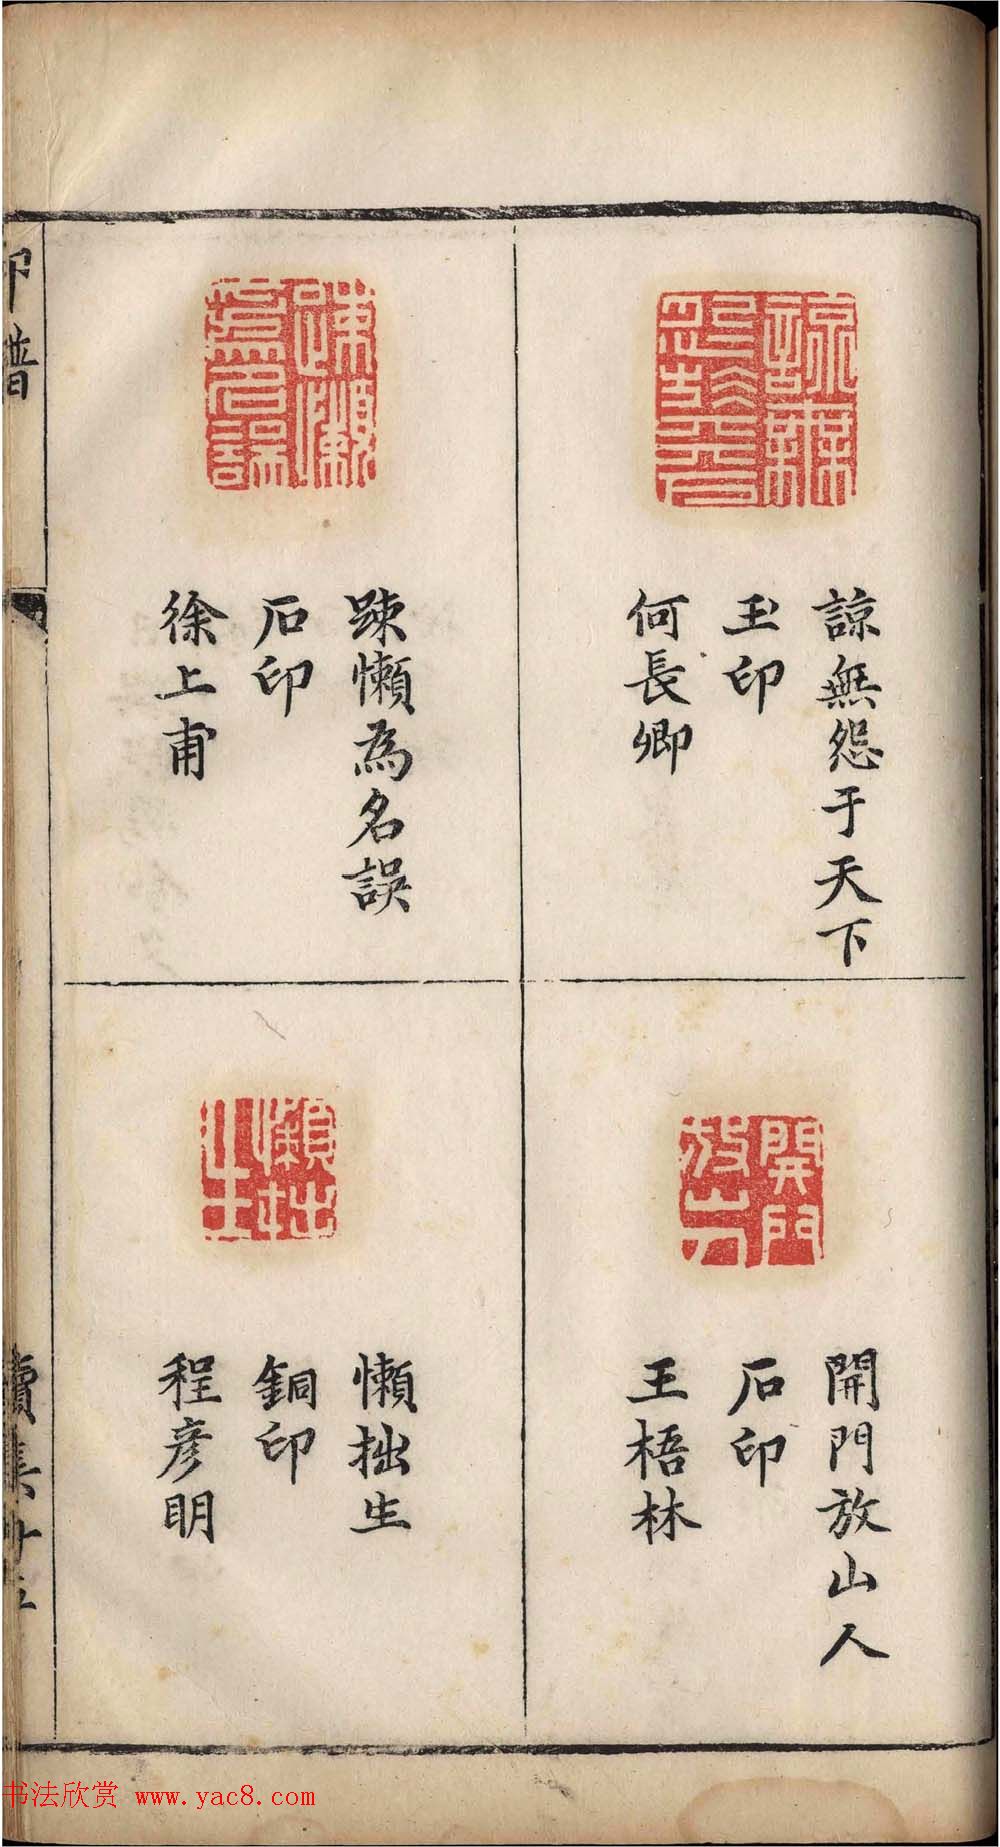 諒無怨于天下
玉印
何長卿
疎懶為名誤
石印
徐上甫
開門放山人
石印
王梧林
懶拙生
銅印
程彦明
印譜
书法欣赏 www.yac8.com